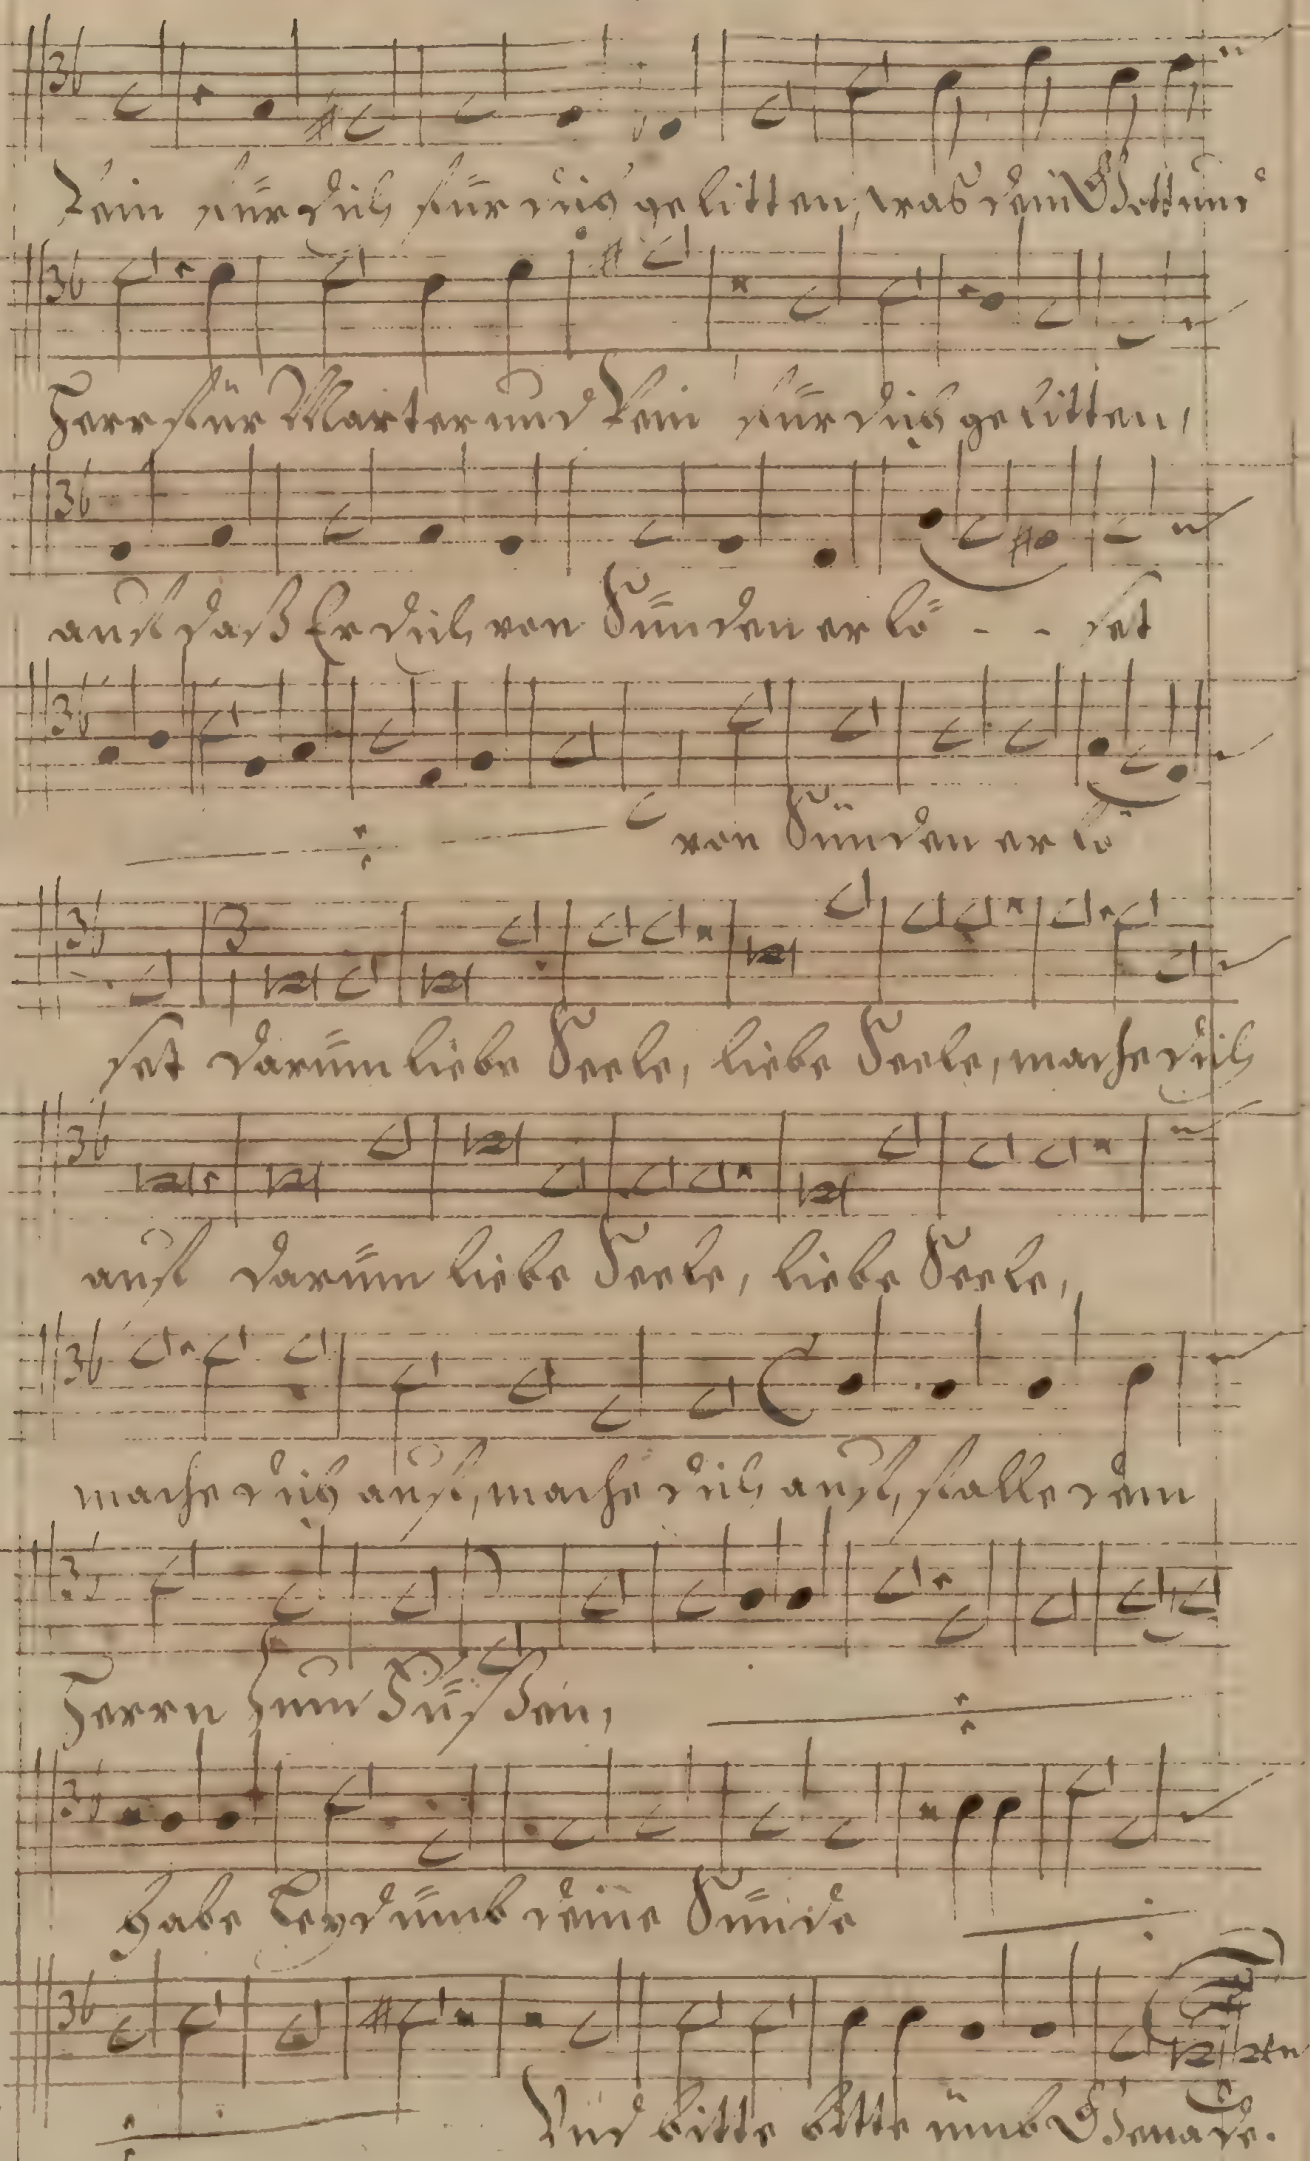 Pein für dich für dich gelitten, was dein Gott und
Herr für Marter und Pein für dich gelitten,
auf daß Er dich von Sünden er lö - - set
von Sünden er lö
set darüm liebe Seele, liebe Seele, mache dich
auf darüm liebe Seele, liebe Seele,
mache dich auf, mache dich auf, falle dem
Herrn zum Füssen,
habe Leyd ümb deine Sünde
Und bitte bitte ümb Genade.